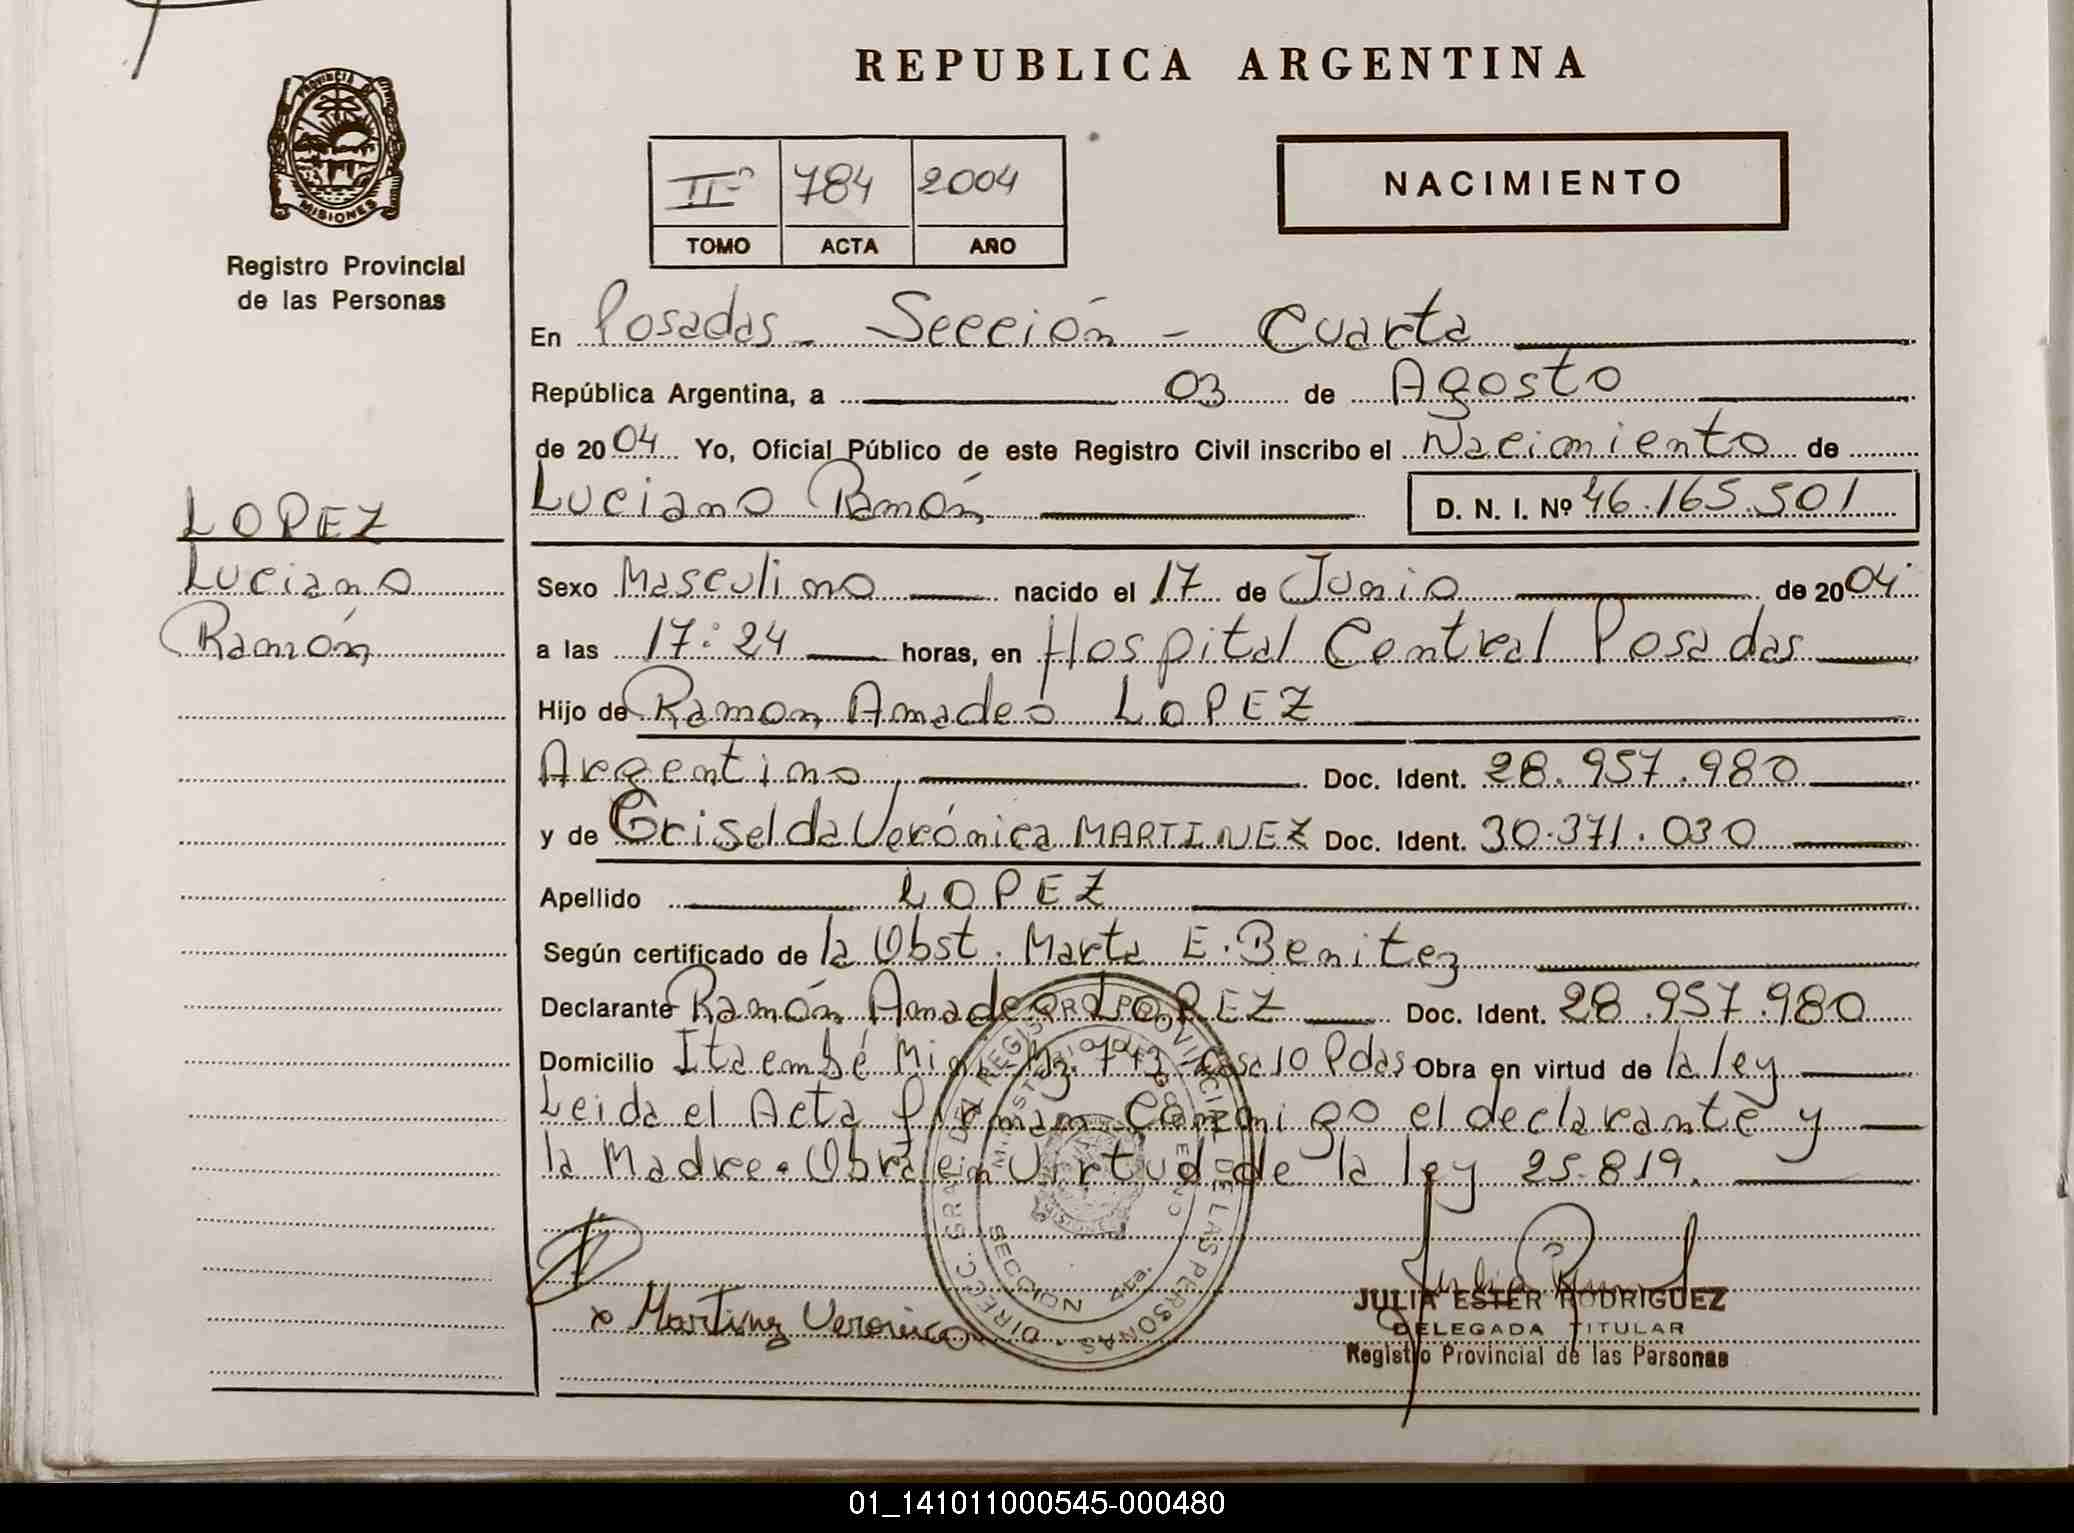 REPUBLICA ARGENTINA
PROVINCIA DE
MISIONES
Registro Provincial
de las Personas
IIº 784 2004
TOMO ACTA AÑO
NACIMIENTO
En Posadas - Sección - Cuarta
República Argentina, a 03 de Agosto
de 2004 Yo, Oficial Público de este Registro Civil inscribo el Nacimiento de
Luciano Ramón D. N. I. Nº 46.165.501
LOPEZ
Luciano
Ramón
Sexo Masculino nacido el 17 de Junio de 2004
a las 17:24 horas, en Hospital Central Posadas
Hijo de Ramon Amadeo LOPEZ
Argentino, Doc. Ident. 28.957.980
y de Griselda Verónica MARTINEZ Doc. Ident. 30.371.030
Apellido LOPEZ
Según certificado de la Obst. Marta E. Benitez
Declarante Ramón Amadeo LOPEZ Doc. Ident. 28.957.980
Domicilio Itaembé Mini Mz. 743 - Casa 10 Pdas Obra en virtud de la ley
Leida el Acta firman Conmigo el declarante y
la Madre. Obra en Virtud de la ley 25.819.
DIRECC. GRAL. DEL REGISTRO PROVINCIAL DE LAS PERSONAS
MINISTERIO DE GOBIERNO
SECCION 4ta.
x Martinez Veronica
JULIA ESTER RODRIGUEZ
DELEGADA TITULAR
Registro Provincial de las Personas
01_141011000545-000480